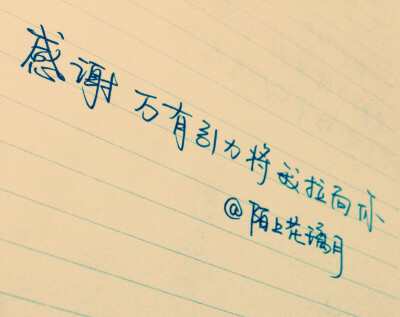 感谢万有引力将我拉向你
@陌上花璃月